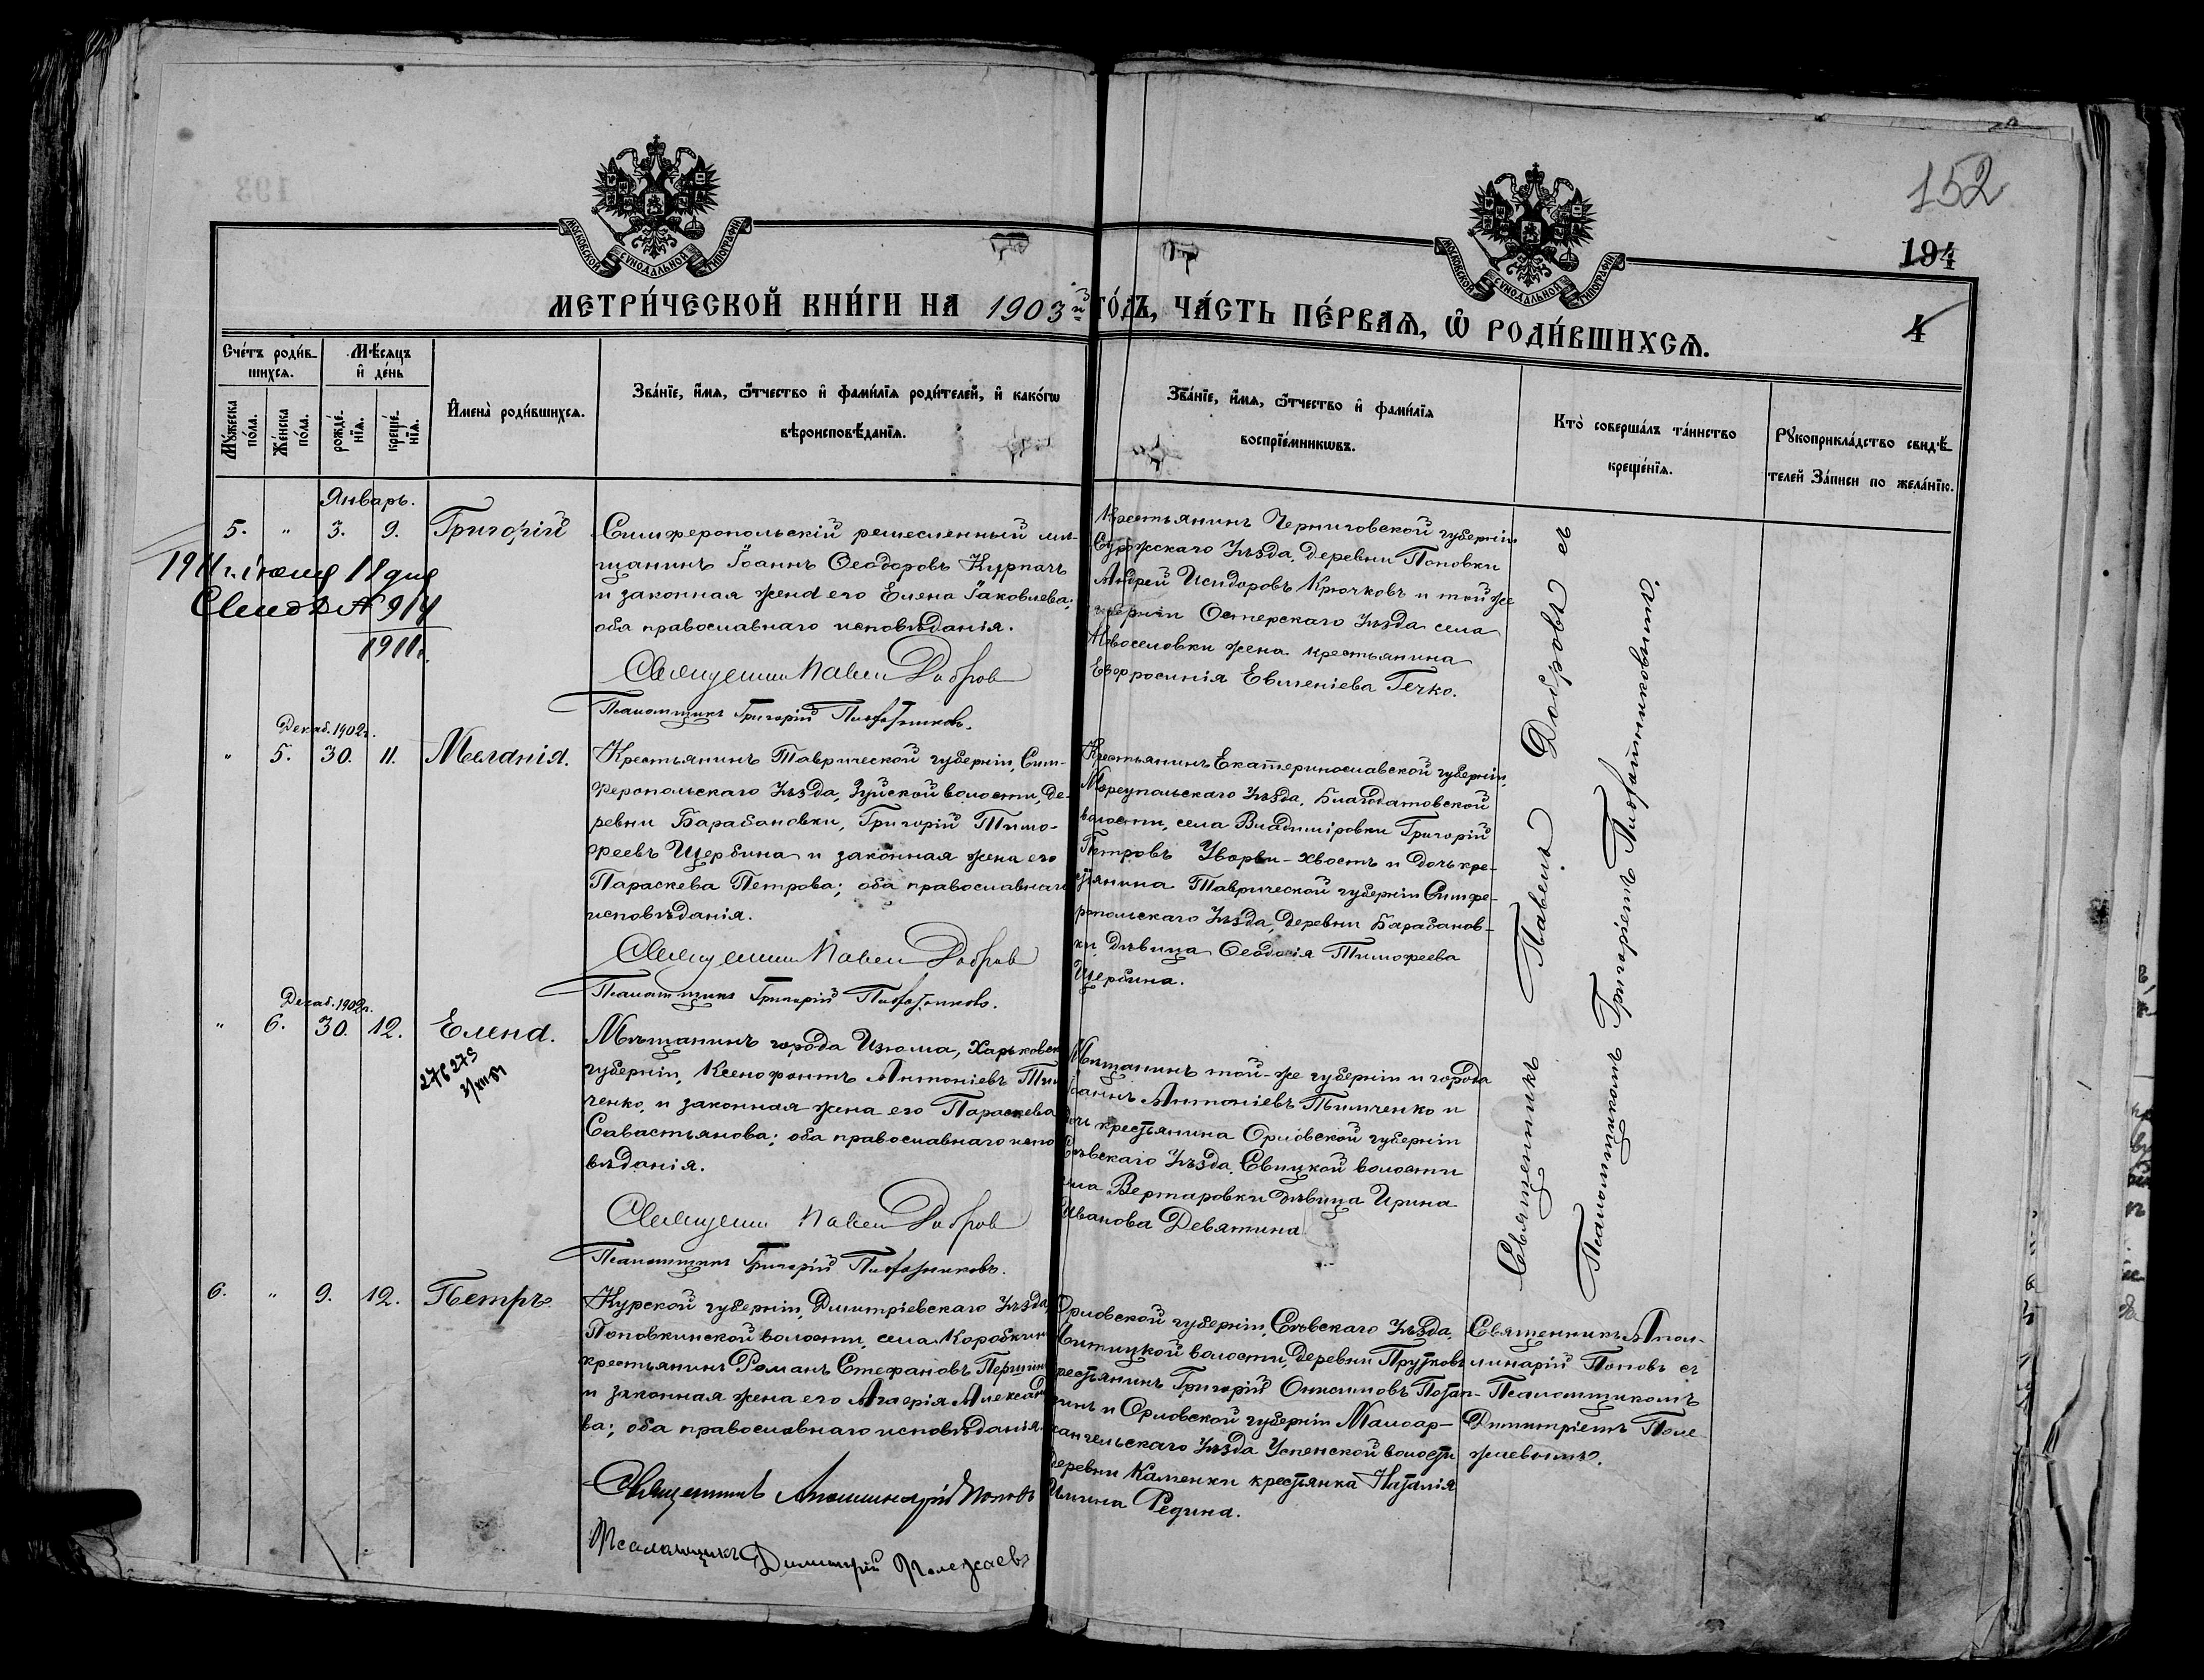 152
194
4
МОСКОВСКОЙ СУНОДАЛЬНОЙ ТИПОГРАФІИ
МОСКОВСКОЙ СУНОДАЛЬНОЙ ТИПОГРАФІИ
МЕТРИ́ЧЕСКОЙ КНИ́ГИ НА 1903й ГО́ДЪ, ЧА́СТЬ ПЕ́РВАѦ, Ѡ҆ РОДИ́ВШИХСѦ.
Сче́тъ роди́в-
шихсѧ.
Мѣ́сѧцъ
и҆ де́нь
Мꙋ́жеска по́ла.
Же́нска по́ла.
рожде́нїѧ.
креще́нїѧ.
И҆мена̀ роди́вшихсѧ.
Зва́нїе, и҆́мѧ, ѻ҆́тчество и҆ фами́лїѧ роди́телей, и҆ како́гѡ
вѣроисповѣ́данїѧ.
Зва́нїе, и҆́мѧ, ѻ҆́тчество и҆ фами́лїѧ
воспрїе́мникѡвъ.
Кто̀ соверша́лъ та́инство
креще́нїѧ.
Рꙋкоприкла́дство свидѣ́-
телей За́писи по жела́нїю.
Январь.
5. " 3. 9. Григорій
1911 г. іюля 18 дня
Свид. № 914
1911 г.
Симферопольскій ремесленный мѣ-
щанинъ Іоаннъ Ѳеодоровъ Курпачъ
и законная жена его Елена Іаковлева;
оба православнаго исповѣданія.
Священник Павел Добров
Псаломщикъ Григорій
Крестьянинъ Черниговской губерніи
Суражскаго уѣзда, деревни Поповки
Андрей Исидоровъ Крючковъ и той же
губерніи Остерскаго уѣзда села
Новоселовки жена крестьянина
Евфросинія Евгеніева Гечко.
Декаб. 1902 г.
" 5. 30. 11. Меланія.
Крестьянинъ Таврической губерніи, Сим-
феропольскаго уѣзда, Зуйской волости, де-
ревни Барабановки, Григорій Тимо-
феевъ Щербина и законная жена его
Параскева Петрова; оба православнаго
исповѣданія.
Священник Павел Добров
Псаломщикъ Григорій
Крестьянинъ Екатеринославской губерніи,
Маріупольскаго уѣзда, Благодатовской
волости, села Владиміровки Григорій
Петровъ Уворви-хвостъ и дочь кре-
стьянина Таврической губерніи Симфе-
ропольскаго уѣзда, деревни Барабанов-
ки, дѣвица Ѳеодосія Тимофеева
Щербина.
Декаб. 1902 г.
" 6. 30. 12. Елена.
276275
Мѣщанинъ города Изюма, Харьковской
губерніи, Ксенофонтъ Антоніевъ
ченко, и законная жена его Параскева
Савастьянова; оба православнаго испо-
вѣданія.
Священник Павел Добров
Псаломщикъ Григорій
Мѣщанинъ той-же губерніи и города
Іоаннъ Антоніевъ и
дочь крестьянина Орловской губерніи
уѣзда, волости
села дѣвица Ирина
Иванова Девятина
Священникъ Павелъ Добровъ съ
Псаломщикомъ Григоріемъ
6. " 9. 12. Петръ.
Курской губерніи, Димитріевскаго уѣзда,
Поповкинской волости, села Коробкина
крестьянинъ Романъ Стефановъ
и законная жена его Агаѳія Александро-
ва; оба православнаго исповѣданія.
Священникъ Аполлинарій Поповъ
Псаломщикъ Димитрій Полежаевъ
Орловской губерніи, уѣзда,
волости, деревни
крестьянинъ Григорій Онисимовъ
и Орловской губерніи Малоар-
хангельскаго уѣзда Успенской волости
деревни Каменки крестьянка Наталія
Ильина Редина.
Священникъ Апол-
линарій Поповъ съ
Псаломщикомъ
Димитріемъ Поле-
жаевымъ.